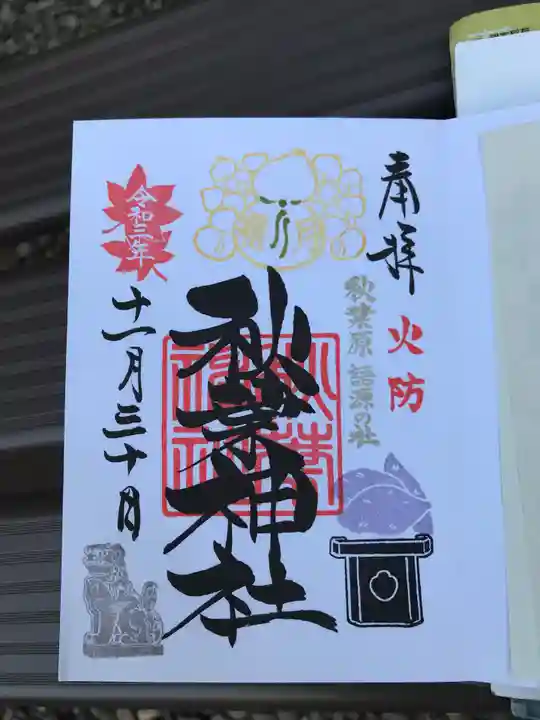 奉拝
火防
秋葉原語源の社
秋葉神社
秋葉神社
令和三年
十一月三十日